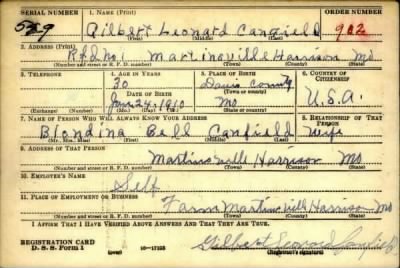 SERIAL NUMBER 1. NAME (Print) ORDER NUMBER
529 Gilbert Leonard Canfield 902
(First) (Middle) (Last)
2. ADDRESS (Print)
Rfd no 1 Martinsville Harrison Mo
(Number and street or R. F. D. number) (Town) (County) (State)
3. TELEPHONE 4. AGE IN YEARS 5. PLACE OF BIRTH 6. COUNTRY OF CITIZENSHIP
30 Davis County
DATE OF BIRTH (Town or county)
Jan. 24, 1910 Mo U.S.A.
(Exchange) (Number) (Mo.) (Day) (Yr.) (State or country)
7. NAME OF PERSON WHO WILL ALWAYS KNOW YOUR ADDRESS 8. RELATIONSHIP OF THAT PERSON
Blondina Bell Canfield Wife
(Mr., Mrs., Miss) (First) (Middle) (Last)
9. ADDRESS OF THAT PERSON
Martinsville Harrison Mo
(Number and street or R. F. D. number) (Town) (County) (State)
10. EMPLOYER'S NAME
Self
11. PLACE OF EMPLOYMENT OR BUSINESS
Farm Martinsville Harrison Mo
(Number and street or R. F. D. number) (Town) (County) (State)
I AFFIRM THAT I HAVE VERIFIED ABOVE ANSWERS AND THAT THEY ARE TRUE.
REGISTRATION CARD
D. S. S. Form 1 16—17105 Gilbert Leonard Canfield
(Registrant's signature)